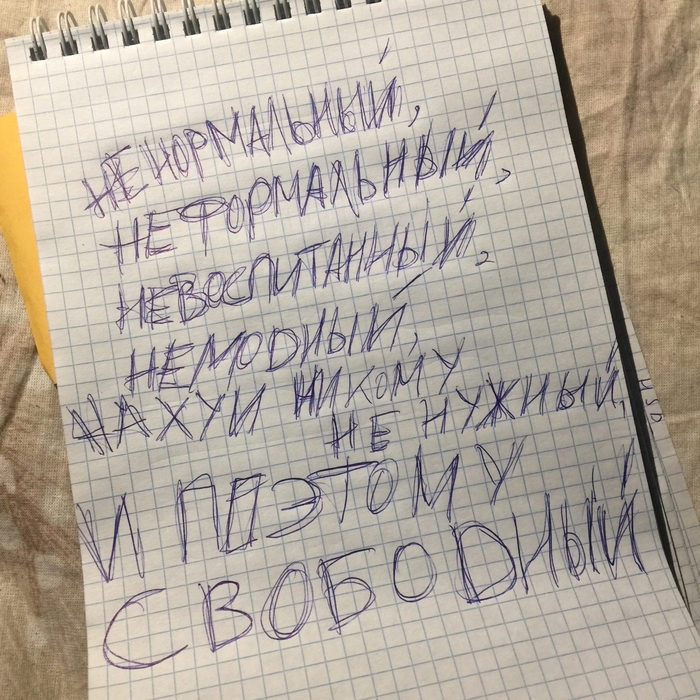 НЕНОРМАЛЬНЫЙ,
НЕФОРМАЛЬНЫЙ,
НЕВОСПИТАННЫЙ,
НЕМОДНЫЙ,
НАХУЙ НИКОМУ
НЕ НУЖНЫЙ,
И ПОЭТОМУ
СВОБОДНЫЙ